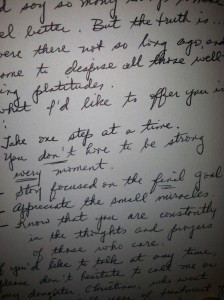 d say so many
el better. But the truth is
were there not so long ago, and
ome to despise all those well-
ing platitudes.
what I'd like to offer you is
:
Take one step at a time.
You don't have to be strong
every moment.
- Stay focused on the final goal
- Appreciate the small miracles
- Know that you are constantly
in the thoughts and prayers
of those who care.
If you'd like to talk at any time,
please don't hesitate to call me or
my daughter, Christian, who went